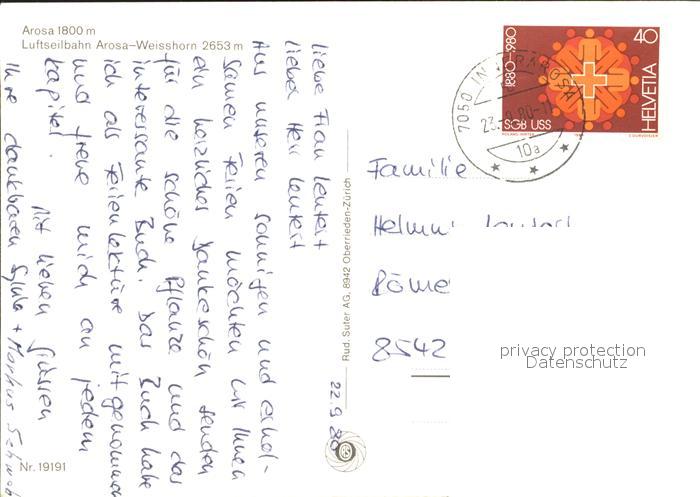 Arosa 1800 m
Luftseilbahn Arosa–Weisshorn 2653 m
Liebe Frau Leutert
lieber Herr Leutert
Aus unseren sonnigen und erhol-
samen Ferien möchten wir Ihnen
ein herzliches Dankeschön senden
für die schöne Pflanze und das
interessante Buch. Das Buch habe
ich als Ferienlektüre mitgenommen
und freue mich an jedem
Kapitel.
Mit lieben Grüssen
Ihre dankbaren Sylvia + Markus Schwab
Nr. 19191
22.9.80
Rud. Suter AG, 8942 Oberrieden-Zürich
1880–1980
40
HELVETIA
SGB USS
7050
10a
Familie
Helmut
Röme
8542
privacy protection
Datenschutz